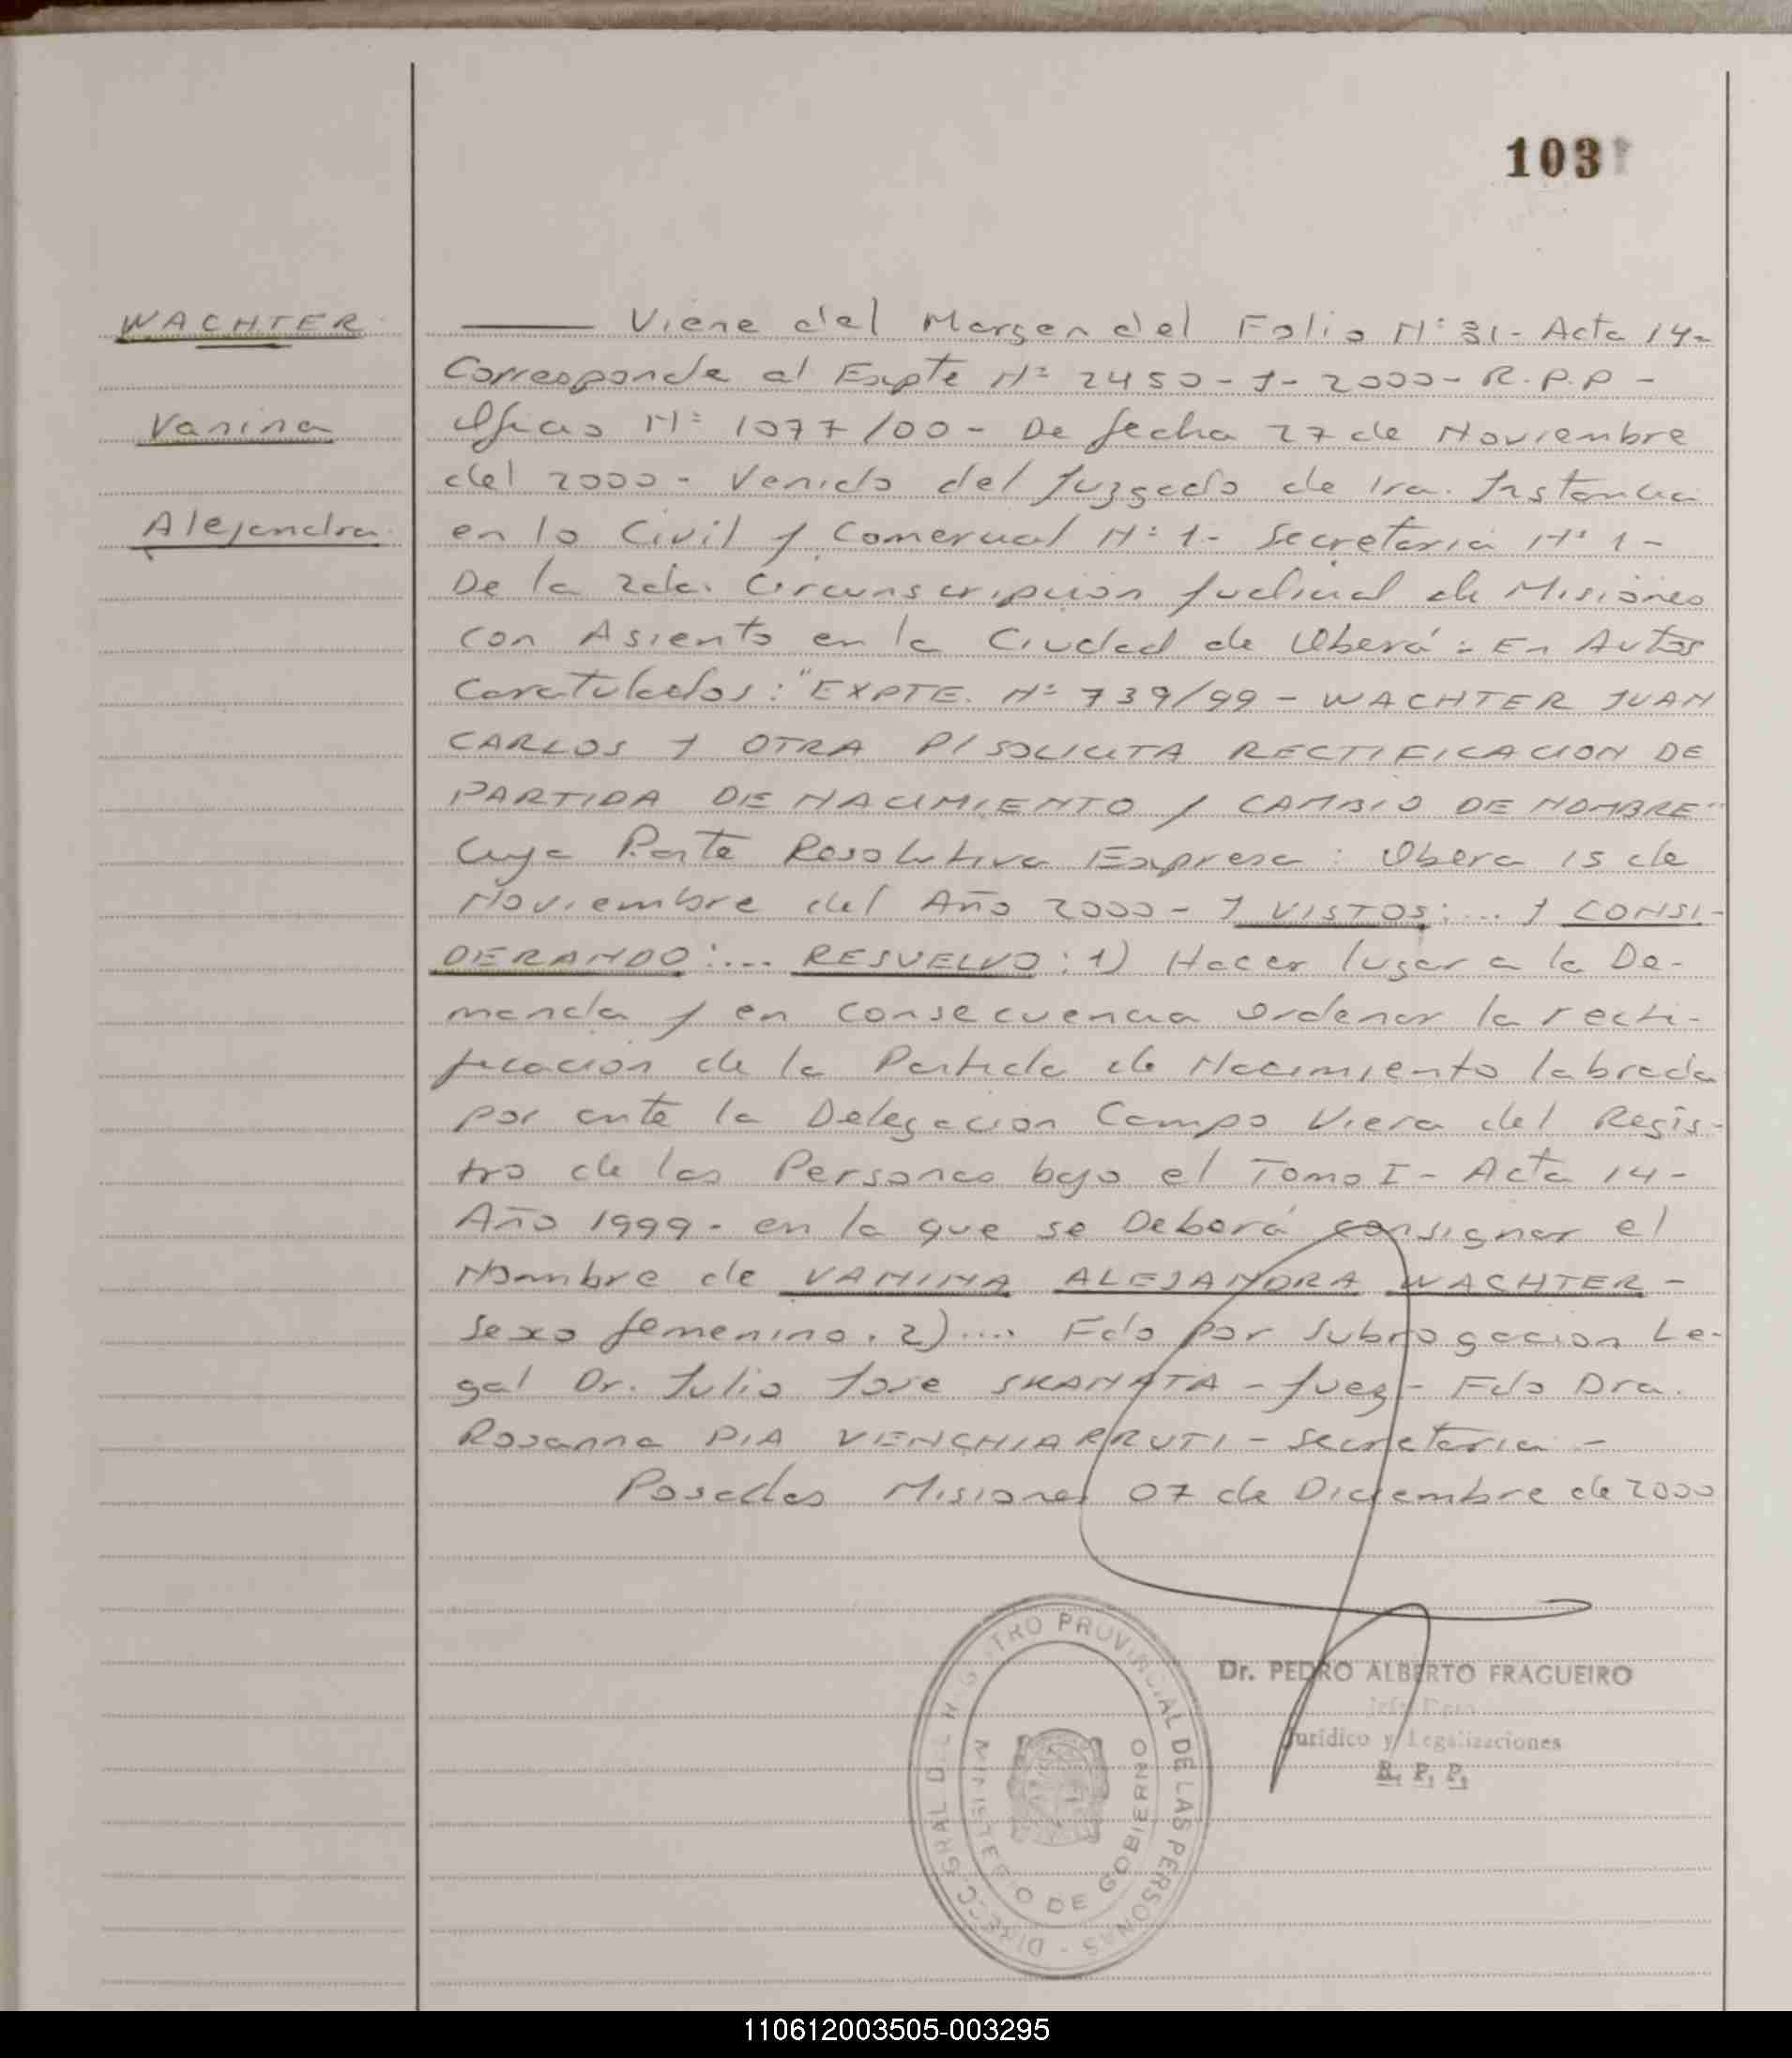 103
WACHTER
Vanina
Alejandra
Viene del Margen del Folio Nº 31 - Acta 14-
Corresponde al Expte Nº 2450 - Y - 2000 - R.P.P -
Oficio Nº 1077/00 - De fecha 27 de Noviembre
del 2000 - Venido del Juzgado de 1ra. Instancia
en lo Civil y Comercial Nº 1 - Secretaria Nº 1 -
De la 2da. Circunscripcion Judicial de Misiones
con Asiento en la Ciudad de Oberá - En Autos
Caratulados: "EXPTE. Nº 739/99 - WACHTER JUAN
CARLOS Y OTRA P/ SOLICITA RECTIFICACION DE
PARTIDA DE NACIMIENTO y CAMBIO DE NOMBRE"
Cuya Parte Resolutiva Expresa: Obera 15 de
Noviembre del Año 2000 - Y VISTOS:... Y CONSI-
DERANDO:... RESUELVO: 1) Hacer lugar a la De-
manda y en consecuencia ordenar la recti-
ficacion de la Partida de Nacimiento labrada
por ante la Delegacion Campo Viera del Regis-
tro de las Personas bajo el Tomo I - Acta 14 -
Año 1999 - en la que se Deberá consignar el
Nombre de VANINA ALEJANDRA WACHTER -
sexo femenino. 2).... Fdo por Subrogacion Le-
gal Dr. Julio Jose SKANATA - Juez - Fdo Dra.
Rosanna PIA VENCHIARRUTI - Secretaria -
Posadas Misiones 07 de Diciembre de 2000
Dr. PEDRO ALBERTO FRAGUEIRO
Jurídico y Legalizaciones
R. P. P.
PROVINCIAL DE LAS PERSONAS
MINISTERIO DE GOBIERNO
110612003505-003295